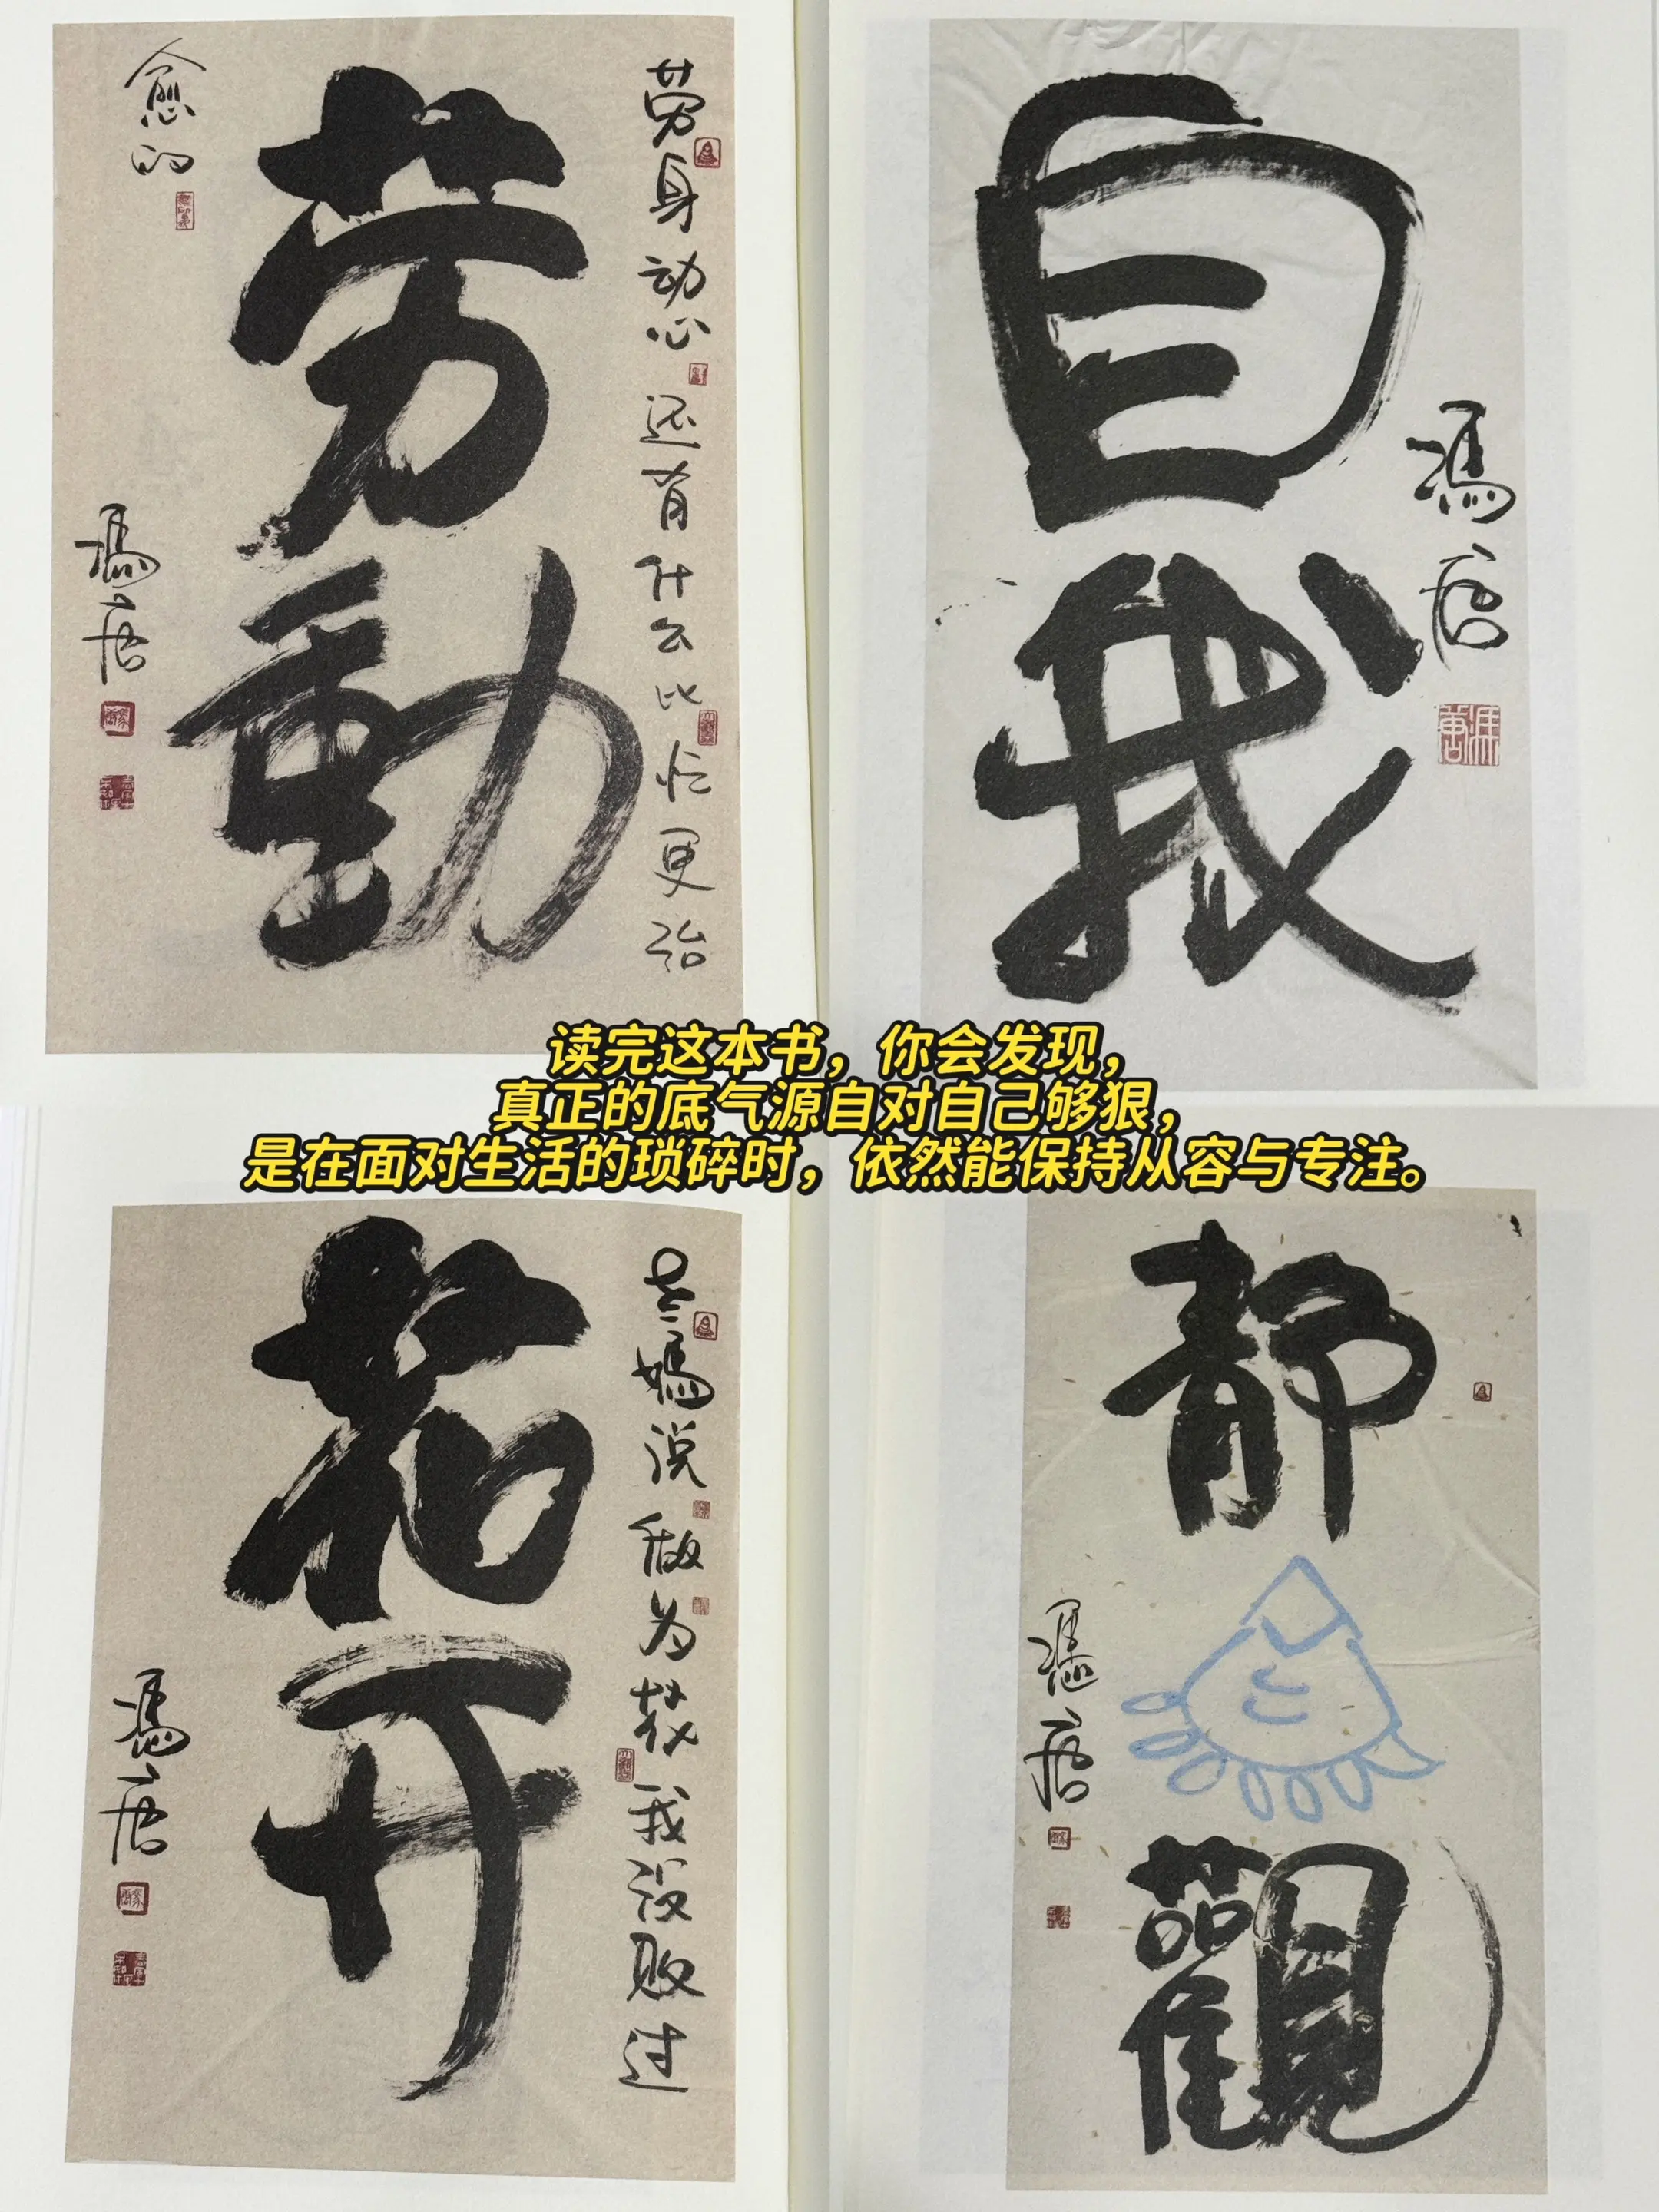 劳身动心还有什么比忙更治
愈的
劳動
馮唐
自我
馮唐
读完这本书，你会发现，
真正的底气源自对自己够狠，
是在面对生活的琐碎时，依然能保持从容与专注。
妈说做为花我没败过
花开
馮唐
静觀
馮唐